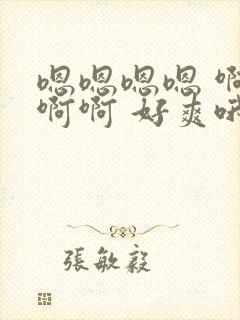 嗯嗯嗯嗯 啊
啊啊 好爽哦
張敏毅